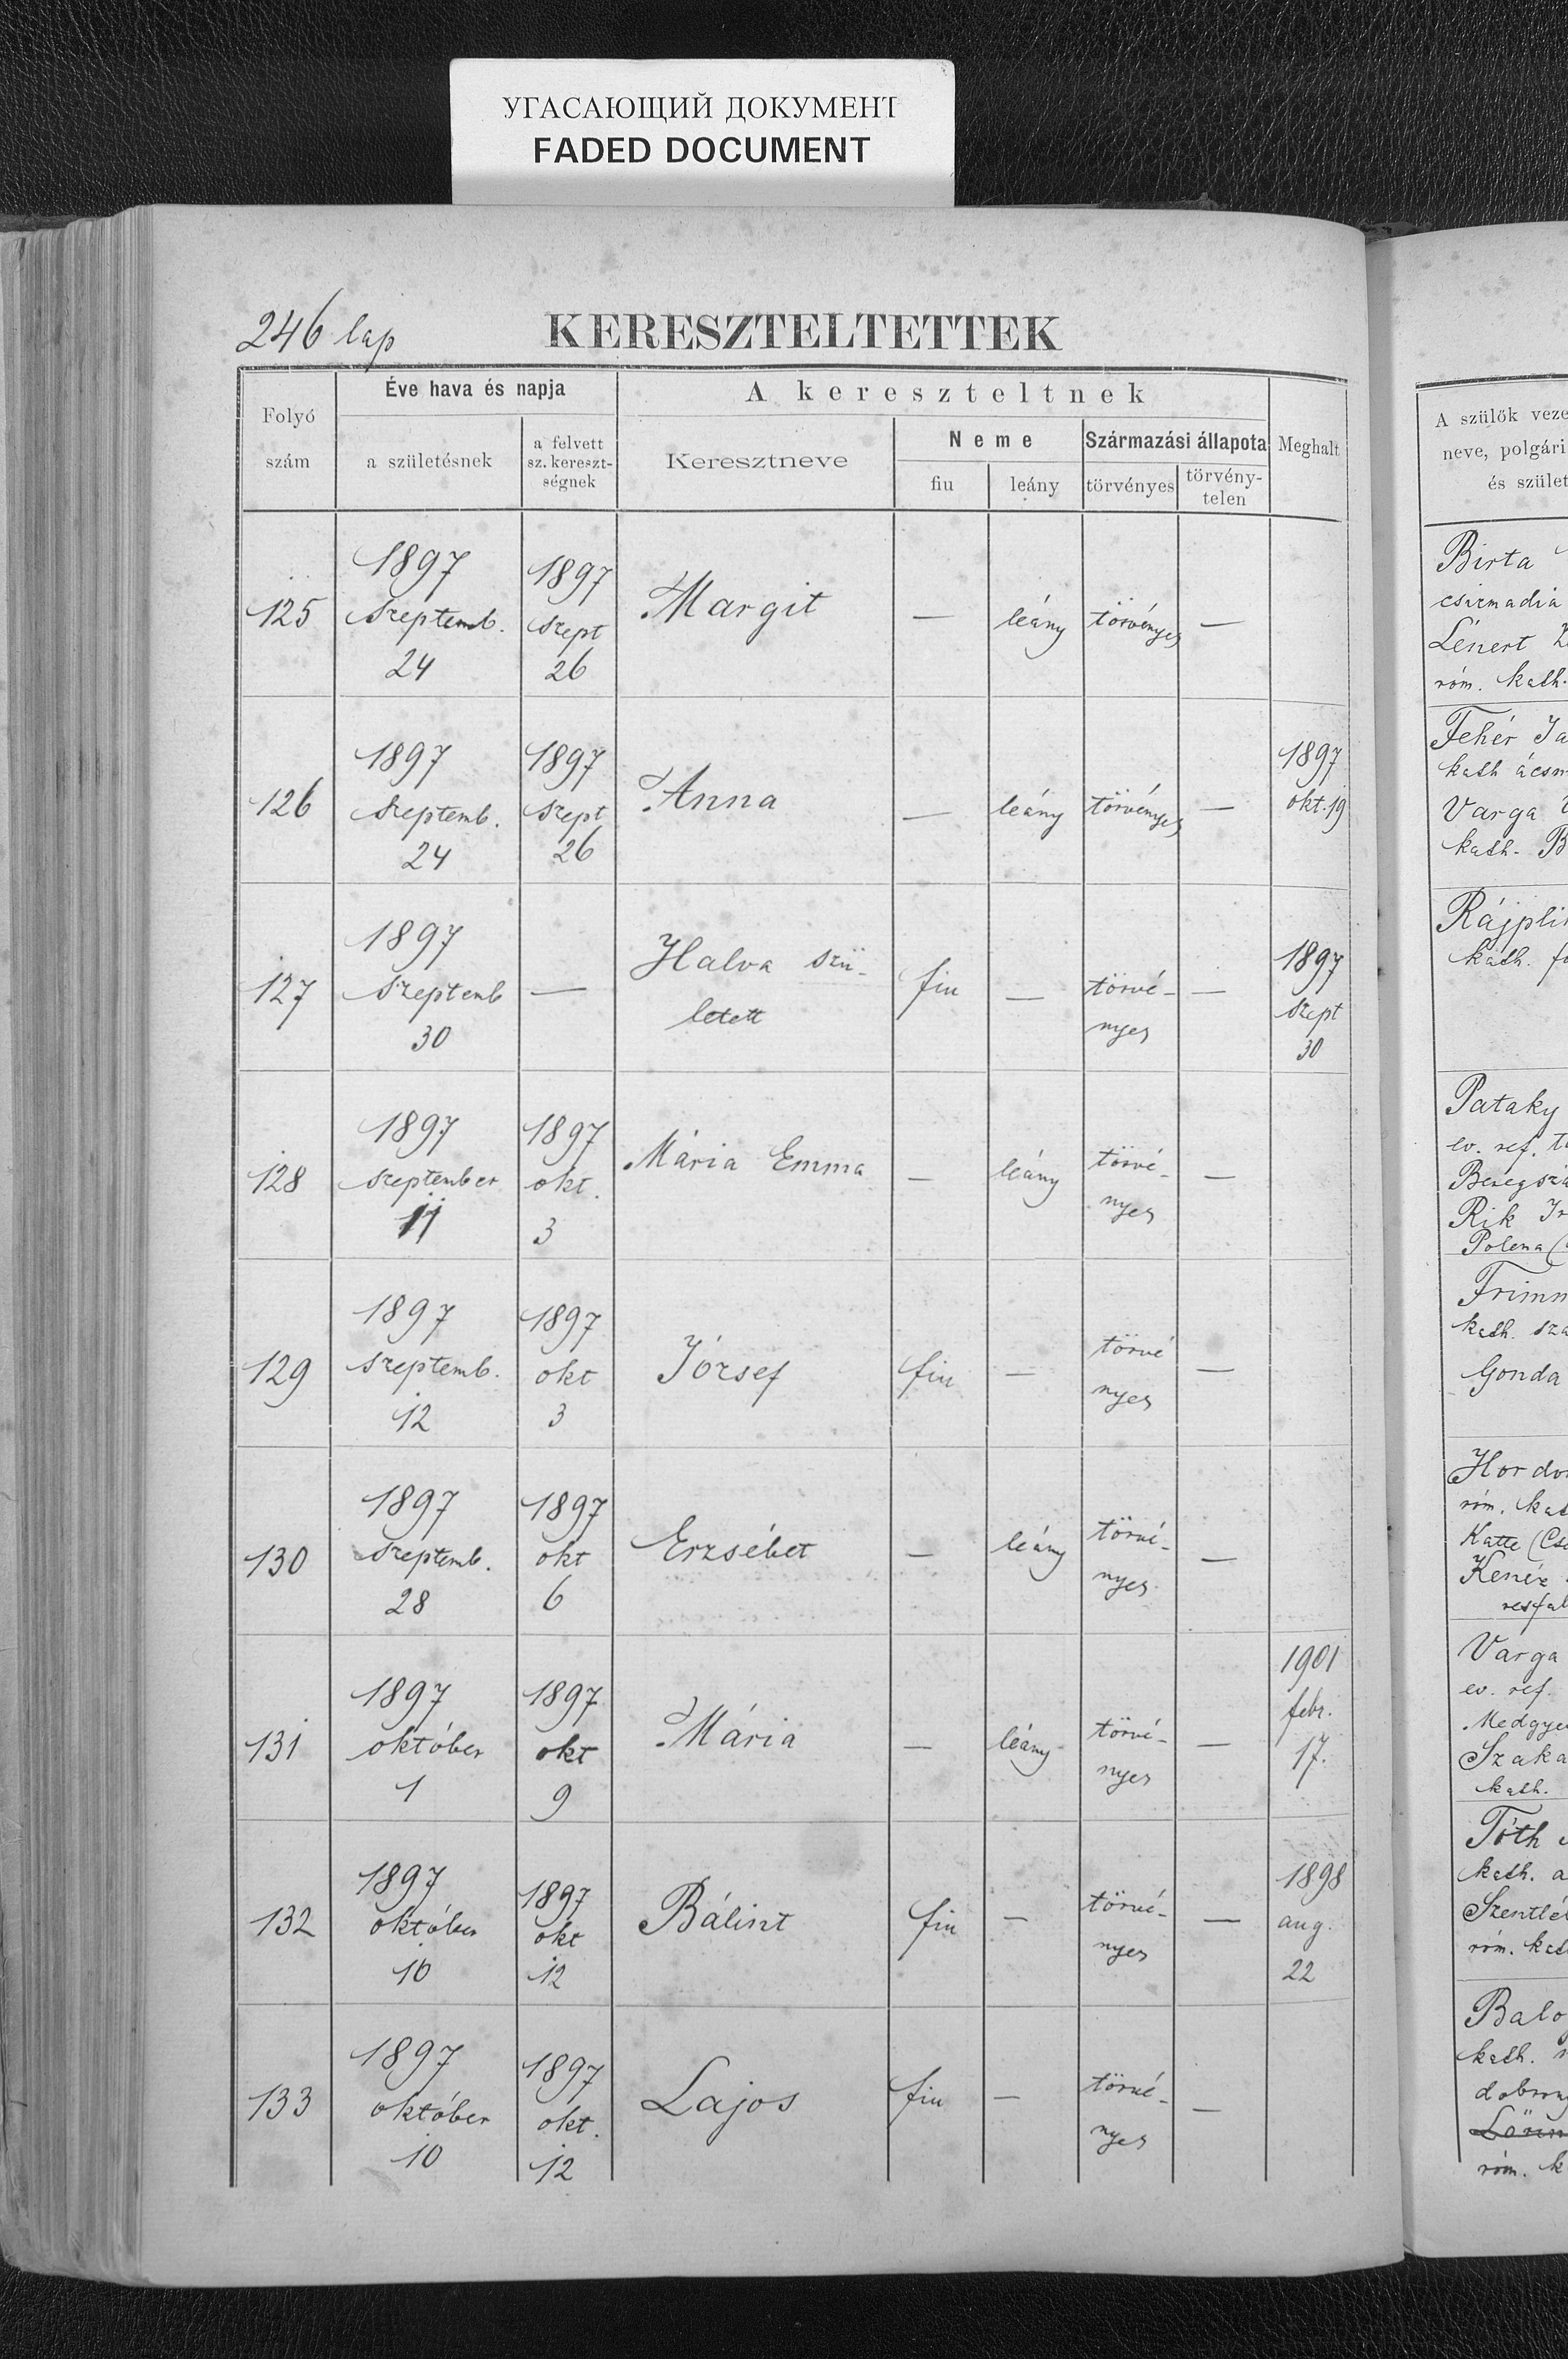 УГАСАЮЩИЙ ДОКУМЕНТ
FADED DOCUMENT
246 lap
KERESZTELTETTEK
Folyó szám
Éve hava és napja
a születésnek
a felvett
sz. kereszt-
ségnek
A kereszteltnek
Keresztneve
Neme
fiu
leány
Származási állapota
törvényes
törvény-
telen
Meghalt
125
1897
Szeptemb.
24
1897
Szept
26
Margit
—
leány
törvényes
—
126
1897
Szeptemb.
24
1897
Szept
26
Anna
—
leány
törvényes
—
1897
okt. 19
127
1897
Szeptemb
30
—
Halva szü-
letett
fiu
—
törvé-
nyes
—
1897
Szept
30
128
1897
szeptember
11
1897
okt.
3
Mária Emma
—
leány
törvé-
nyes
—
129
1897
szeptemb.
12
1897
okt
3
József
fiu
—
törvé
nyes
—
130
1897
Szeptemb.
28
1897
okt
6
Erzsébet
—
leány
törvé-
nyes
—
131
1897
október
1
1897
okt
9
Mária
—
leány
törvé-
nyes
—
1901
febr.
17.
132
1897
október
10
1897
okt
12
Bálint
fiu
—
törvé-
nyes
—
1898
aug.
22
133
1897
október
10
1897
okt.
12
Lajos
fiu
—
törvé-
nyes
—
A szülők veze
neve, polgári
és szület
Birta
csizmadia
Lénert
róm. kath.
Fehér Ja
kath ácsm
Varga
kath. B
Rájpli
kath. fo
Pataky
ev. ref.
Beregszá
Rik Ir
Polena (
Frimm
kath. sza
Gonda
Hordo
róm. kat
Katte (Cse
Kenéz
resfal
Varga
ev. ref.
Medgye
Szaka
kath.
Tóth
kath. a
Szentlé
róm. kat
Balo
kath.
dobrony
róm. k